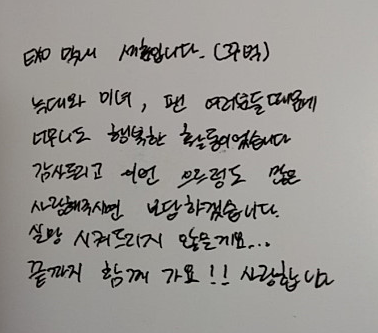 EXO 막내 세훈입니다. (꾸벅)
늑대와 미녀, 팬 여러분들때문에
너무나도 행복한 활동이었습니다
감사드리고 이번 으르렁도 많은
사랑해주시면 보답하겠습니다.
실망 시켜드리지 않을게요...
끝까지 함께 가요!! 사랑합니다